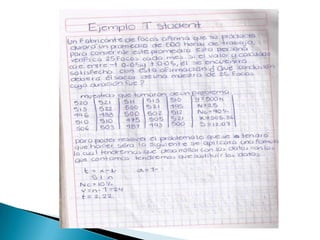 Ejemplo T student
Un Fabricante de Focos afirma que su producto
durará un promedio de 500 horas de trabajo,
Para conservar este promedio esta persona
verifica 25 Focos cada mes. Si el valor y calculado
cae entre -t 0.05 y t 0.05, él se encuentra
satisfecho con esta afirmación ¿Qué conclusión
deberá él sacar de una muestra de 25 Focos
cuya duración fue?
muestras que tomaron de un problema
520 521 511 513 510 μ=500 h
513 522 500 521 495 n=25
496 488 500 502 512 Nc=90%
510 510 475 505 521 X=505.36
506 503 487 493 500 S=12.07
para poder resolver el problema lo que se tendrá
que hacer será lo siguiente se aplicará una formula
la cual tendremos que desarrollar con los datos con los
que contamos tendremos que sustituir los datos
t = x-μ
S/√n
Nc=90%
v=n-1=24
t=2.22